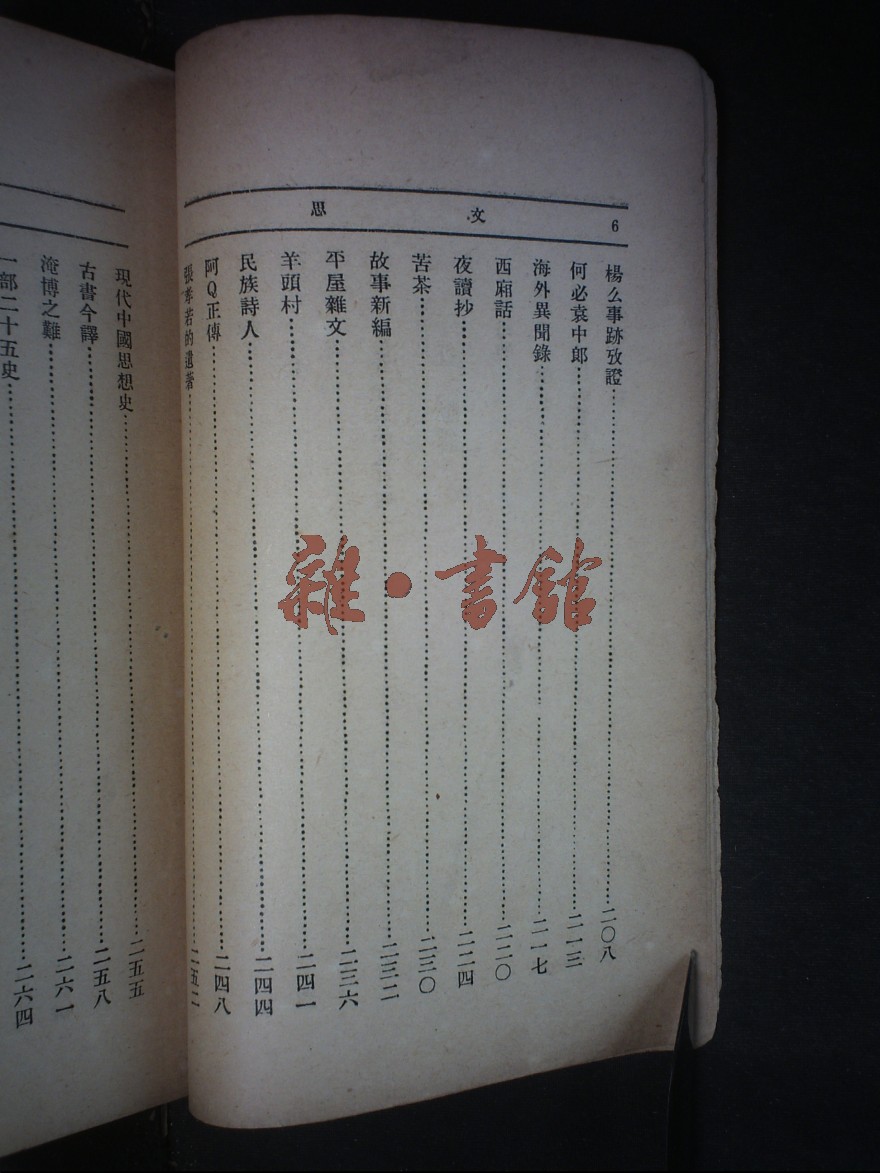 6 文思
楊么事跡攷證……二〇八
何必袁中郎……二一三
海外異聞錄……二一七
西廂話……二二〇
夜讀抄……二二四
苦茶……二三〇
故事新編……二三二
平屋雜文……二三六
羊頭村……二四一
民族詩人……二四四
阿Q正傳……二四八
張孝若的遺著……二五二
現代中國思想史……二五五
古書今譯……二五八
淹博之難……二六一
一部二十五史……二六四
雜·書館